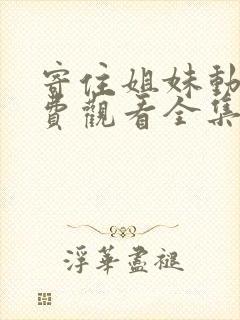 寄住姐妹動
費觀看全集
浮華盡褪